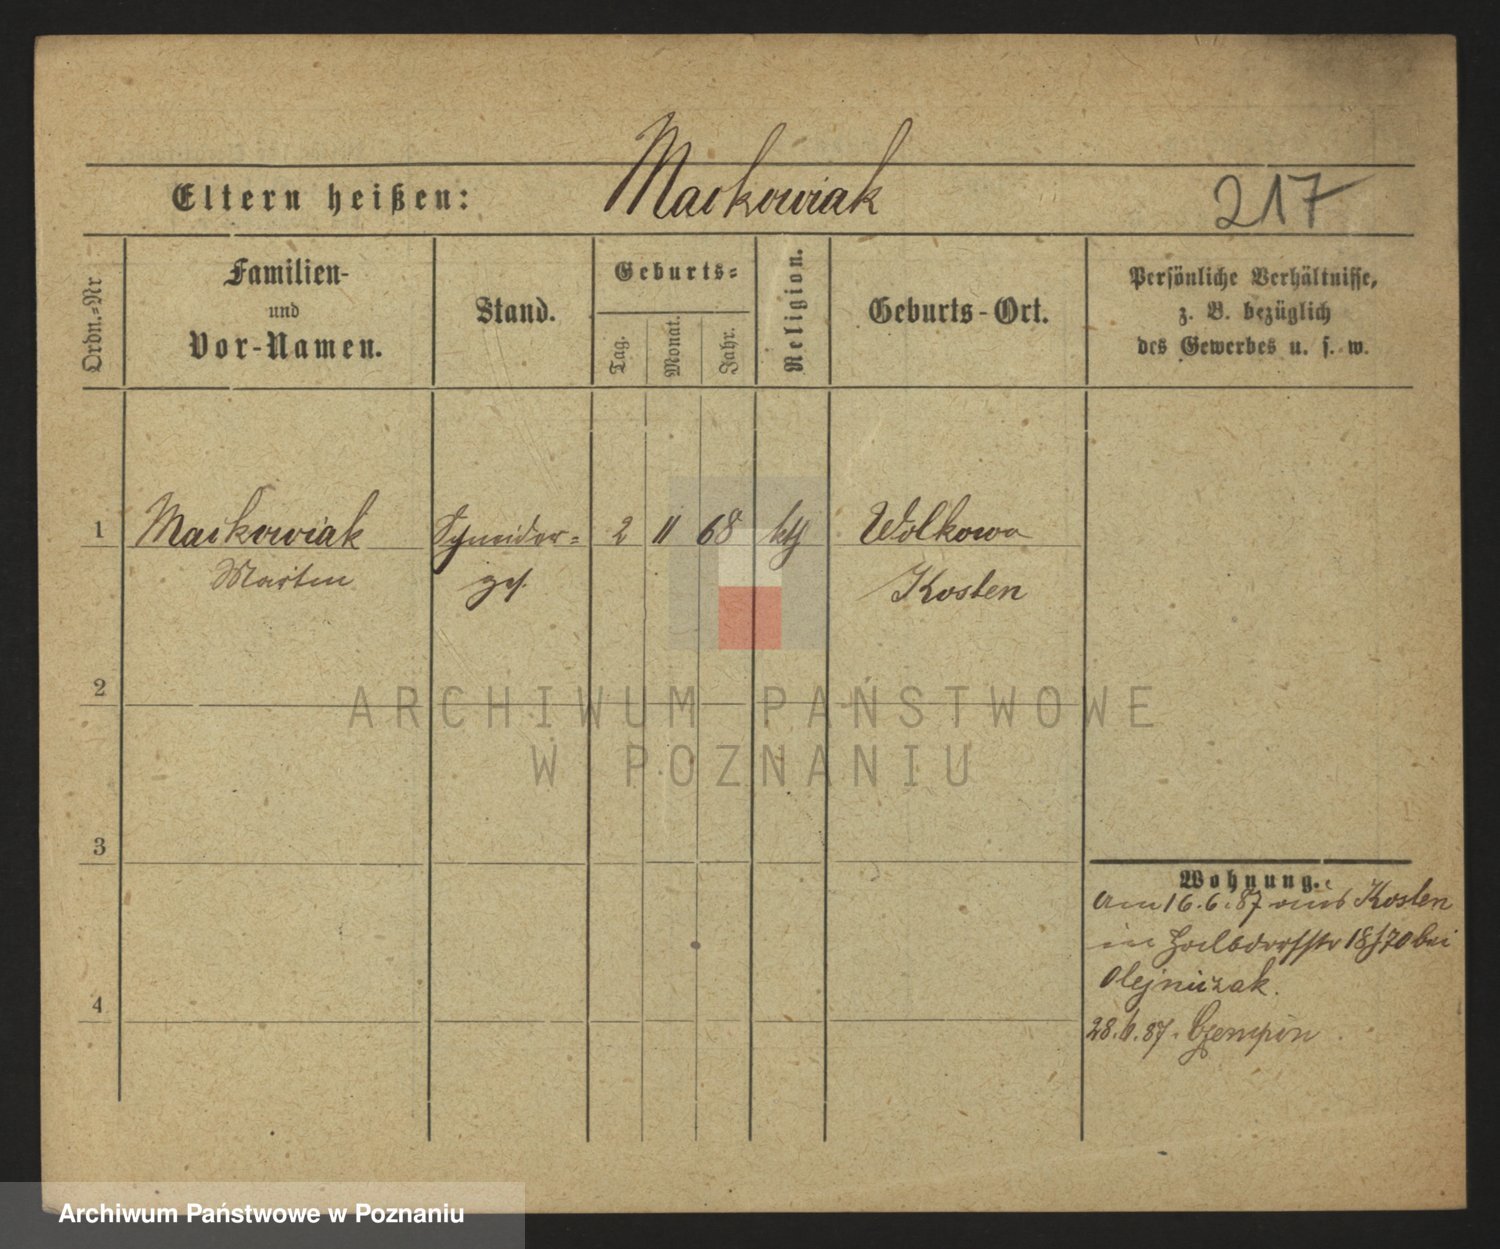 Mackowiak
Eltern heißen:
217
Ordn.-Nr
Familien-
und
Vor-Namen.
Stand.
Geburts-
Tag.
Monat.
Jahr.
Religion.
Geburts-Ort.
Persönliche Verhältnisse,
z. B. bezüglich
des Gewerbes u. s. w.
1 Mackowiak Schneider- 2 11 68 kth Wolkowo
Martin ges. Kosten
2
ARCHIWUM PAŃSTWOWE
W POZNANIU
3
4
Wohnung.
Am 16.6.87 aus Kosten
in 18/70 bei
Olejniczak.
28.6.87. Czempin
Archiwum Państwowe w Poznaniu